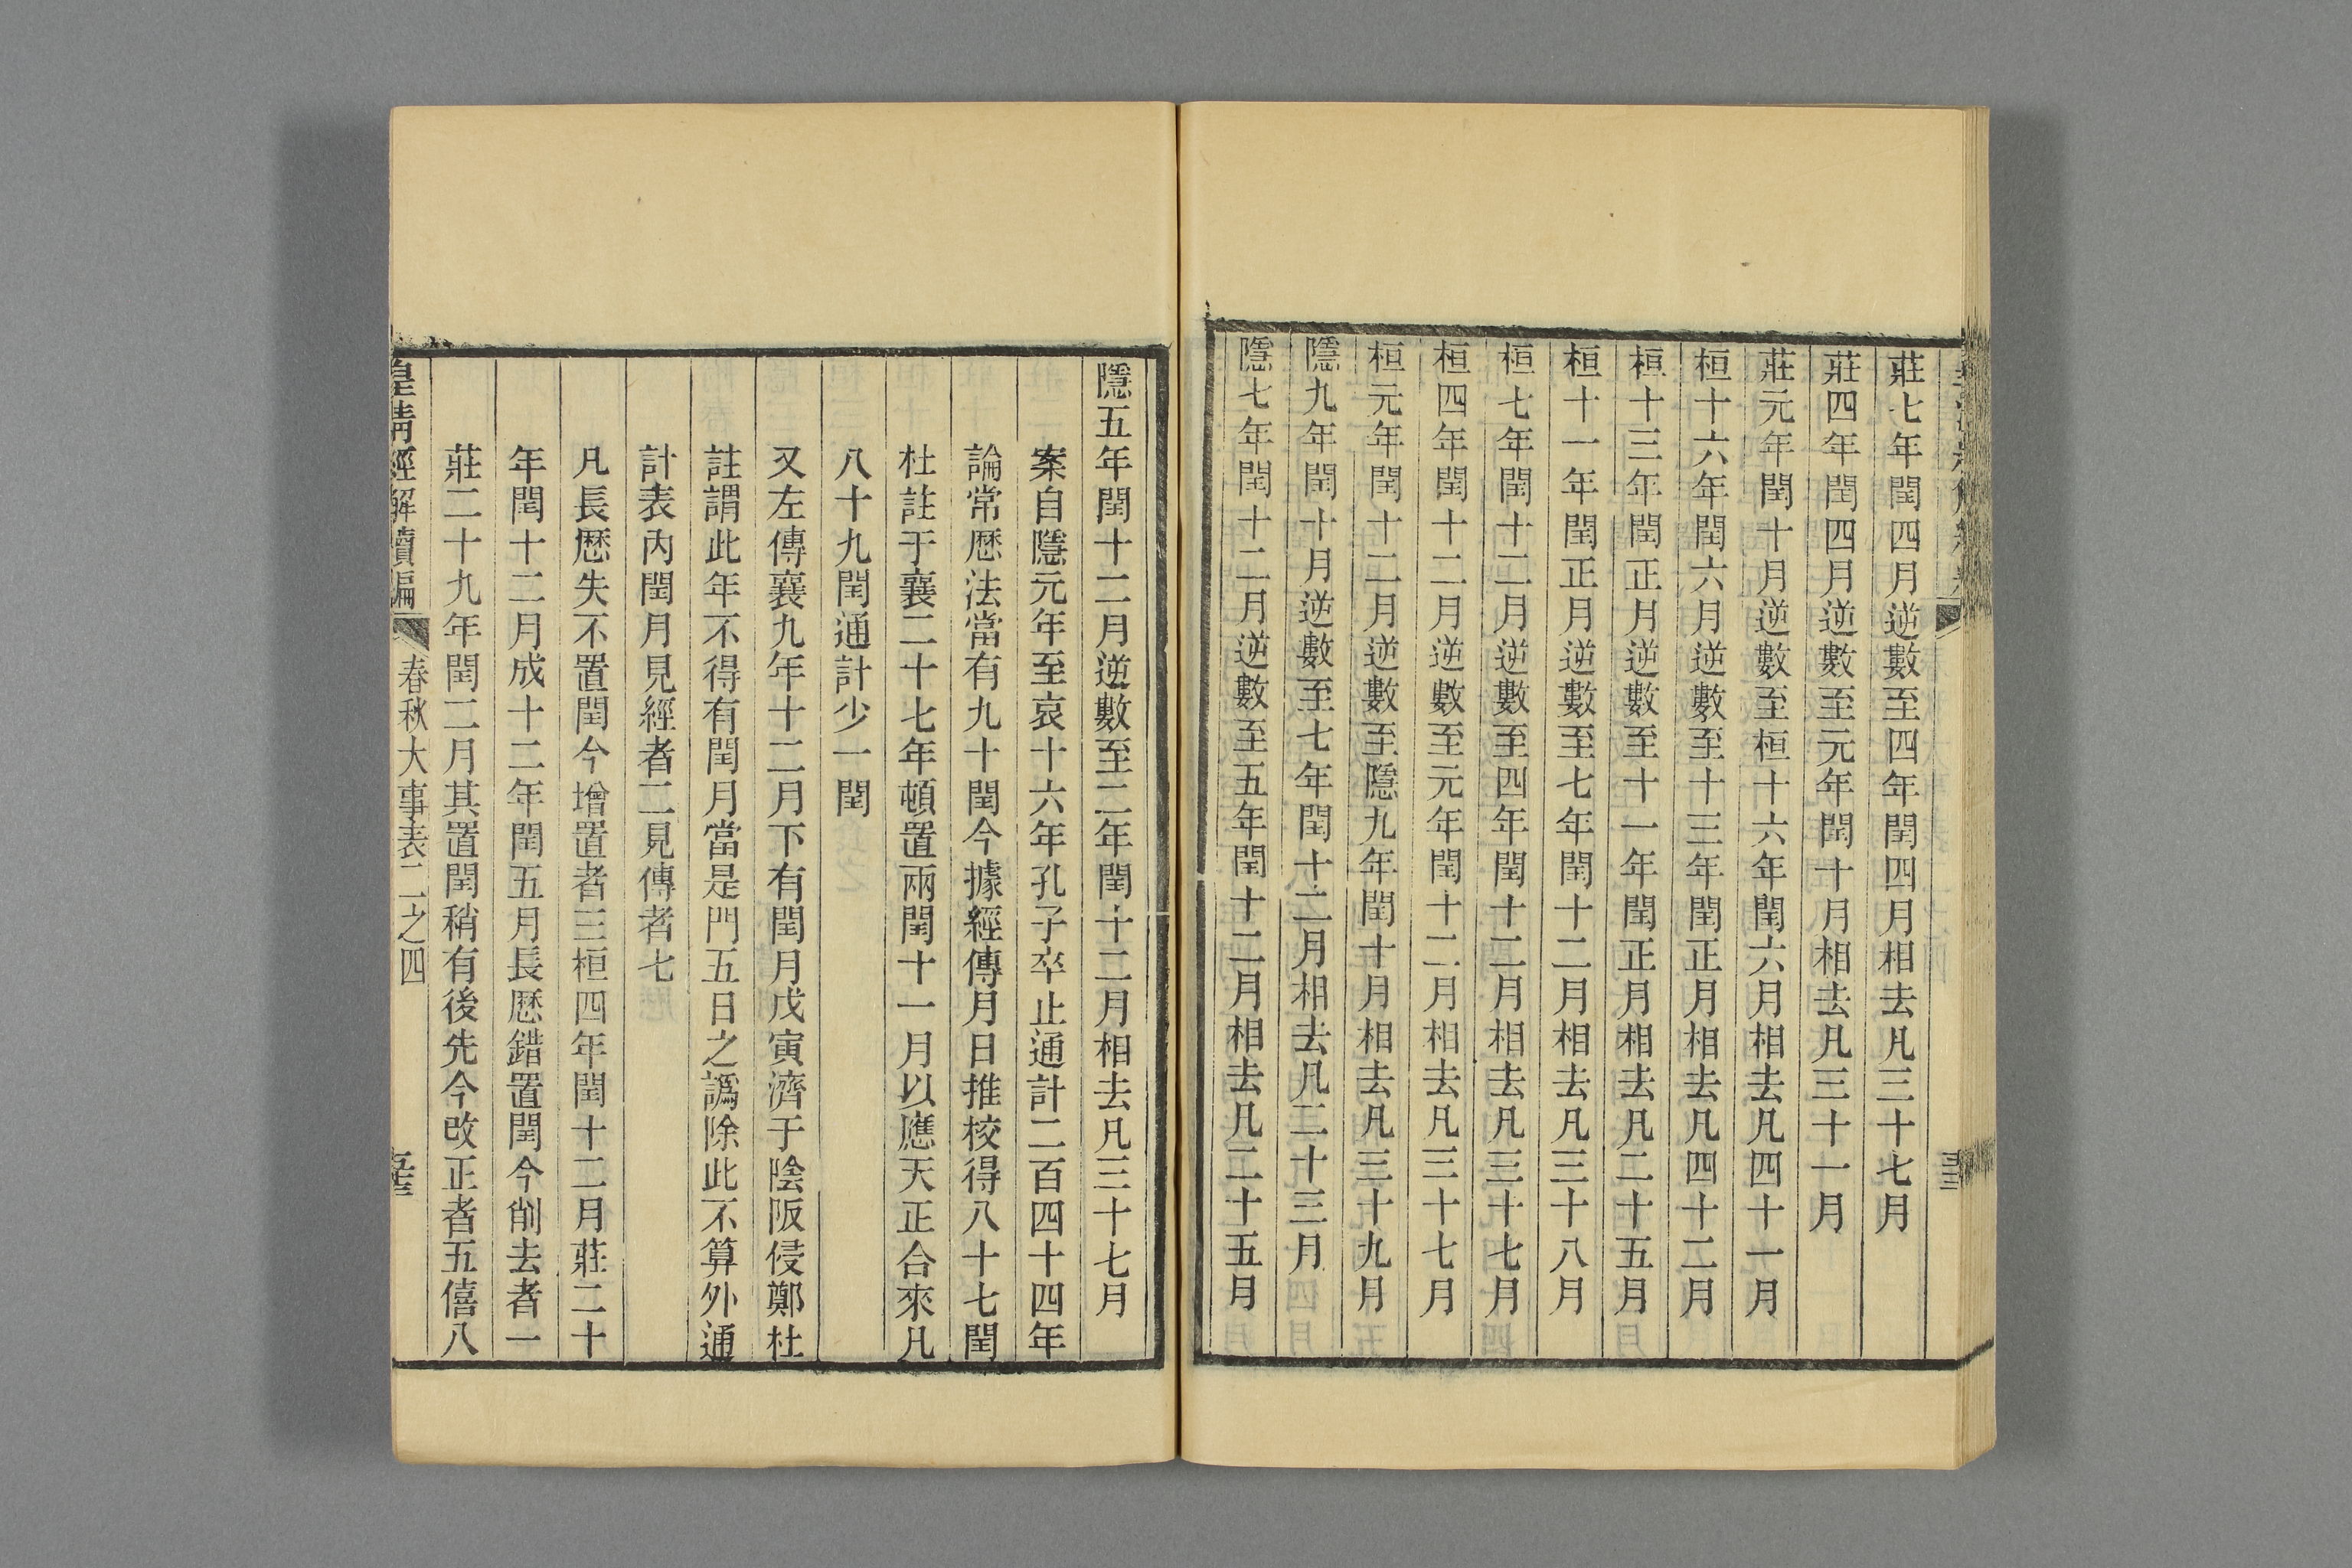 莊七年閏四月逆數至四年閏四月相去凡三十七月
莊四年閏四月逆數至元年閏十月相去凡三十一月
莊元年閏十月逆數至桓十六年閏六月相去凡四十一月
桓十六年閏六月逆數至十三年閏正月相去凡四十二月
桓十三年閏正月逆數至十一年閏正月相去凡二十五月
桓十一年閏正月逆數至七年閏十二月相去凡三十八月
桓七年閏十二月逆數至四年閏十二月相去凡三十七月
桓四年閏十二月逆數至元年閏十二月相去凡三十七月
桓元年閏十二月逆數至隱九年閏十月相去凡三十九月
隱九年閏十月逆數至七年閏十二月相去凡二十三月
隱七年閏十二月逆數至五年閏十二月相去凡二十五月
隱五年閏十二月逆數至二年閏十二月相去凡三十七月
案自隱元年至哀十六年孔子卒止通計二百四十四年
論常厯法當有九十閏今據經傳月日推校得八十七閏
杜註于襄二十七年頓置兩閏十一月以應天正合來凡
八十九閏通計少一閏
又左傳襄九年十二月下有閏月戊寅濟于陰阪侵鄭杜
註謂此年不得有閏月當是門五日之譌除此不算外通
計表內閏月見經者二見傳者七
凡長厯失不置閏今增置者三桓四年閏十二月莊二十
年閏十二月成十二年閏五月長厯錯置閏今削去者一
莊二十九年閏二月其置閏稍有後先今改正者五僖八
皇清經解續編
春秋大事表二之四